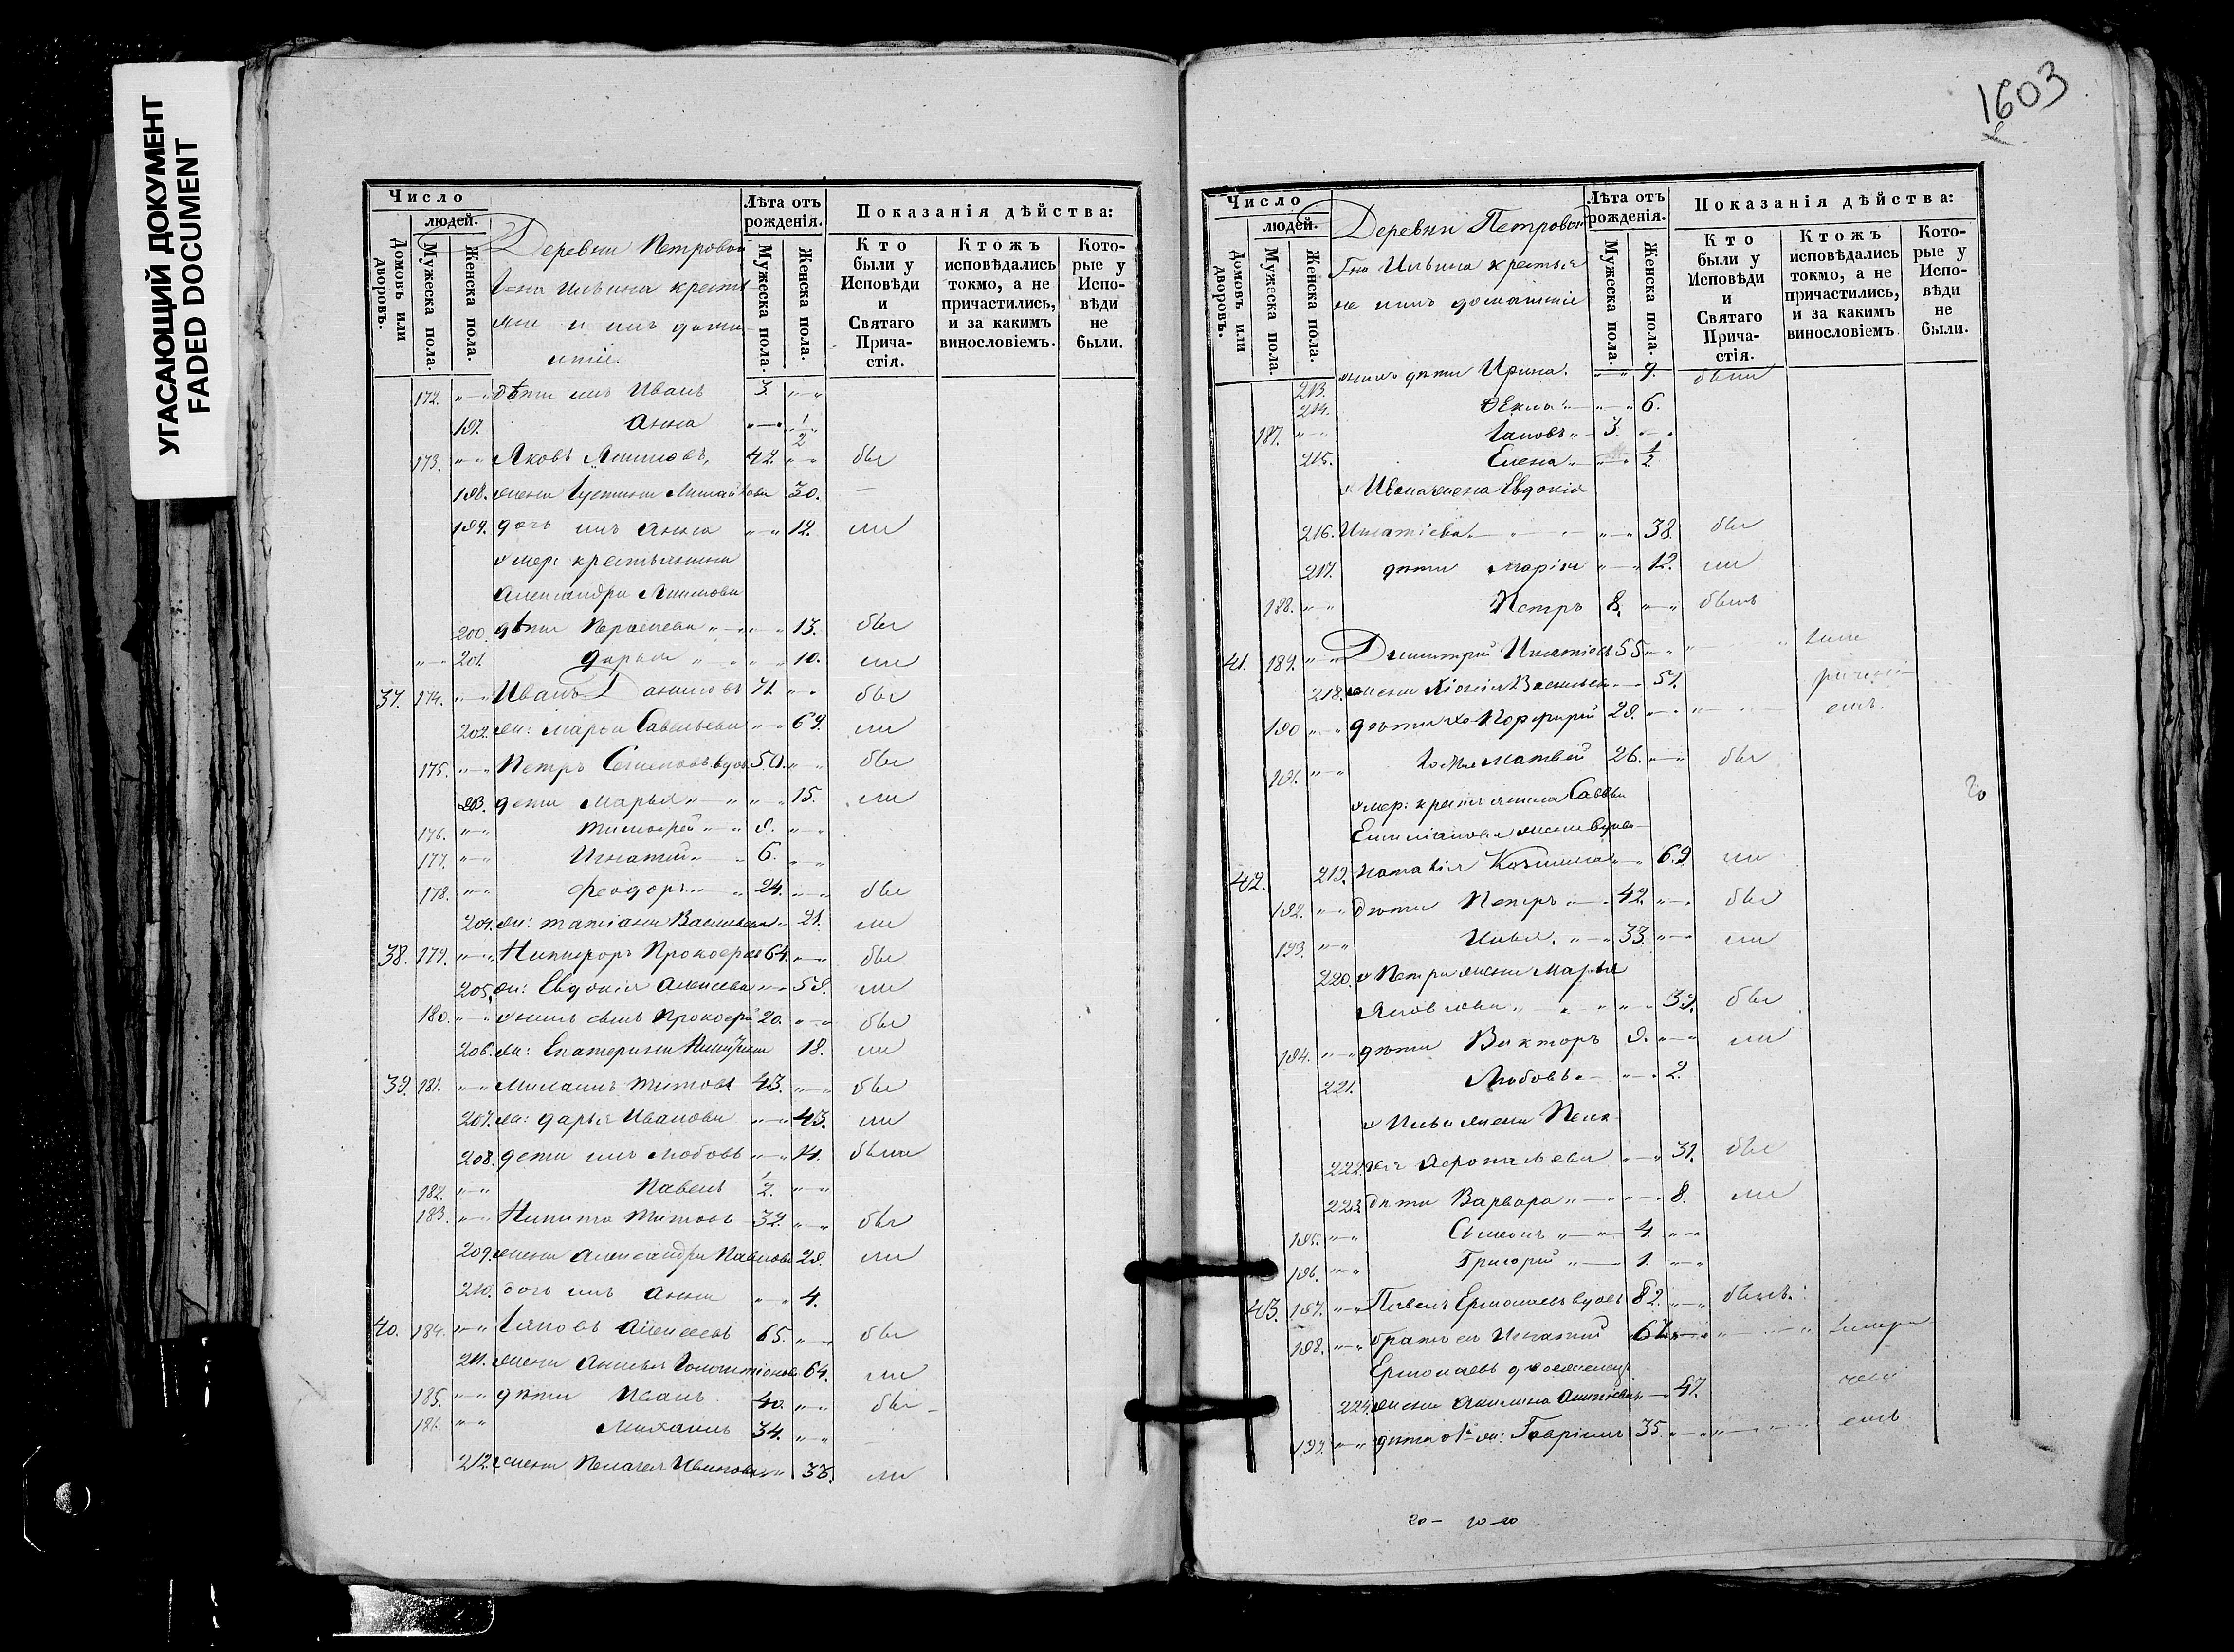 УГАСАЮЩИЙ ДОКУМЕНТ
FADED DOCUMENT
Число
людей.
Домовъ или дворовъ.
Мужеска пола.
Женска пола.
Деревни Петровой
Г=на Ильина кресть
яне и ихъ дома
шніе.
Лѣта отъ рожденія.
Мужеска пола.
Женска пола.
Показанія дѣйства:
Кто были у Исповѣди и Святаго Причастія.
Ктожъ исповѣдались токмо, а не причастились, и за какимъ винословіемъ.
Которые у Исповѣди не были.
172. дѣти ихъ Иванъ 3.
197. Анна 1/2
173. Яковъ 42. бы
198. жена Устинья 30. —
199. дочь ихъ Анна 12. ли
умер: крестьянина
Александра
200. дѣти Парасковья 13. бы
201. Дарья 10. ли
37. 174. Иванъ Даниловъ 71. бы
202. жен: Марфа Савельева 69. ли
175. Петръ Семеновъ вдов 50. бы
203. дети Марья 15. ли
176. Тимофей 9.
177. Игнатій 6.
178. Феодоръ 24. бы
204. жен: Татіана Васильева 21. ли
38. 179. Никифоръ Прокофьев 64. бы
205. жен: Евдокія Алексеева 59. ли
180. у нихъ сынъ Прокофій 20. бы
206. жен: Екатерина 18. ли
39. 181. Михаилъ Титовъ 43. бы
207. жен: Дарья Иванова 43. ли
208. дети ихъ Любовь 14. были
182. Павелъ 1/2.
183. Никита Титовъ 32. бы
209. жена Александра Павлова 29. ли
210. дочь ихъ Анна 4.
40. 184. Іаковъ Алексеевъ 65. бы
211. жена Анисья 64. ли
185. дѣти Иванъ 40. бы
186. Михаилъ 34.
212. жена Пелагея Иванова 33. ли
1603
Число
людей.
Домовъ или дворовъ.
Мужеска пола.
Женска пола.
Деревни Петровой
Г=на Ильина крестья
не ихъ домашніе
Лѣта отъ рожденія.
Мужеска пола.
Женска пола.
Показанія дѣйства:
Кто были у Исповѣди и Святаго Причастія.
Ктожъ исповѣдались токмо, а не причастились, и за какимъ винословіемъ.
Которые у Исповѣди не были.
213. дѣти Ирина. 9. были
214. Ѳекла 6.
187. Іаковъ 3.
215. Елена 1/2
у Ивана жена Евдокія
216. Игнатіева 38. бы
217. дѣти Марія 12. ли
188. Петръ 8. былъ
41. 189. Димитрій Игнатіевъ 55
218. жена Васильева 51.
190 дѣти ихъ Порфирій 29.
191. Матвей 26. бы
умер: крестьянина Саввы
жена вдова
42. 219. Наталія Козмина 69 ли
192. дѣти Петръ 42. бы
193. Илья 33. ли
220. у Петра жена Марья
Яковлева 39. бы
194. дѣти Викторъ 9. ли
221. Любовь 2.
у Ильи жена Пела-
222. гея 31. бы
223 дѣти Варвара 8. ли
195. Симеонъ 4.
196. Григорій 1.
43. 197. Павелъ Ермолаевъ вдовъ 82. былъ.
198. братъ ев Игнатій 67.
Ермолаевъ
224. жена Акилина 47.
199. дѣти отъ 1й жен: Гавріилъ 35.
20
20 — 20 — 20